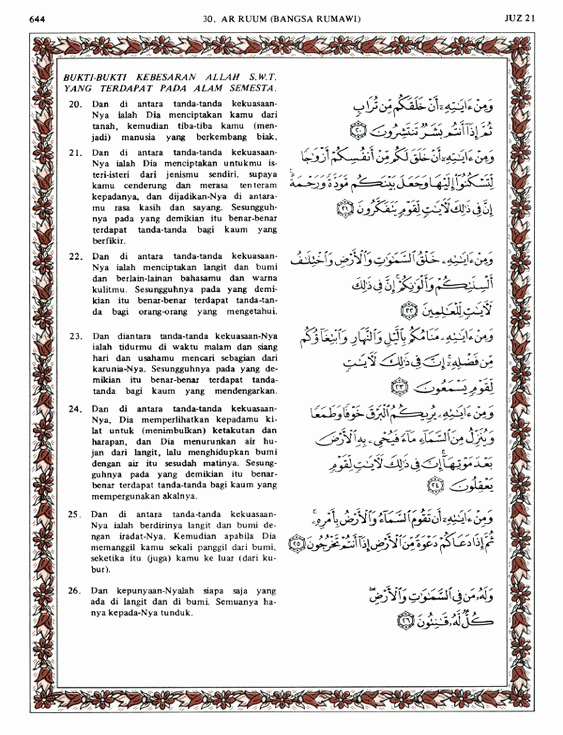 644
30. AR RUUM (BANGSA RUMAWI)
JUZ 21
BUKTI-BUKTI KEBESARAN ALLAH S.W.T.
YANG TERDAPAT PADA ALAM SEMESTA.
20. Dan di antara tanda-tanda kekuasaan-
Nya ialah Dia menciptakan kamu dari
tanah, kemudian tiba-tiba kamu (men-
jadi) manusia yang berkembang biak.
21. Dan di antara tanda-tanda kekuasaan-
Nya ialah Dia menciptakan untukmu is-
teri-isteri dari jenismu sendiri, supaya
kamu cenderung dan merasa tenteram
kepadanya, dan dijadikan-Nya di antara-
mu rasa kasih dan sayang. Sesungguh-
nya pada yang demikian itu benar-benar
terdapat tanda-tanda bagi kaum yang
berfikir.
22. Dan di antara tanda-tanda kekuasaan-
Nya ialah menciptakan langit dan bumi
dan berlain-lainan bahasamu dan warna
kulitmu. Sesungguhnya pada yang demi-
kian itu benar-benar terdapat tanda-tan-
da bagi orang-orang yang mengetahui.
23. Dan diantara tanda-tanda kekuasaan-Nya
ialah tidurmu di waktu malam dan siang
hari dan usahamu mencari sebagian dari
karunia-Nya. Sesungguhnya pada yang de-
mikian itu benar-benar terdapat tanda-
tanda bagi kaum yang mendengarkan.
24. Dan di antara tanda-tanda kekuasaan-
Nya, Dia memperlihatkan kepadamu ki-
lat untuk (menimbulkan) ketakutan dan
harapan, dan Dia menurunkan air hu-
jan dari langit, lalu menghidupkan bumi
dengan air itu sesudah matinya. Sesung-
guhnya pada yang demikian itu benar-
benar terdapat tanda-tanda bagi kaum yang
mempergunakan akalnya.
25. Dan di antara tanda-tanda kekuasaan-
Nya ialah berdirinya langit dan bumi de-
ngan iradat-Nya. Kemudian apabila Dia
memanggil kamu sekali panggil dari bumi,
seketika itu (juga) kamu ke luar (dari ku-
bur).
26. Dan kepunyaan-Nyalah siapa saja yang
ada di langit dan di bumi. Semuanya ha-
nya kepada-Nya tunduk.
وَمِنْ ءَايَٰتِهِۦٓ أَنْ خَلَقَكُم مِّن تُرَابٍ
ثُمَّ إِذَآ أَنتُم بَشَرٌ تَنتَشِرُونَ ۝٢٠
وَمِنْ ءَايَٰتِهِۦٓ أَنْ خَلَقَ لَكُم مِّنْ أَنفُسِكُمْ أَزْوَٰجًا
لِّتَسْكُنُوٓا۟ إِلَيْهَا وَجَعَلَ بَيْنَكُم مَّوَدَّةً وَرَحْمَةً
إِنَّ فِى ذَٰلِكَ لَءَايَٰتٍ لِّقَوْمٍ يَتَفَكَّرُونَ ۝٢١
وَمِنْ ءَايَٰتِهِۦ خَلْقُ ٱلسَّمَٰوَٰتِ وَٱلْأَرْضِ وَٱخْتِلَٰفُ
أَلْسِنَتِكُمْ وَأَلْوَٰنِكُمْ إِنَّ فِى ذَٰلِكَ
لَءَايَٰتٍ لِّلْعَٰلِمِينَ ۝٢٢
وَمِنْ ءَايَٰتِهِۦ مَنَامُكُم بِٱلَّيْلِ وَٱلنَّهَارِ وَٱبْتِغَآؤُكُم
مِّن فَضْلِهِۦٓ إِنَّ فِى ذَٰلِكَ لَءَايَٰتٍ
لِّقَوْمٍ يَسْمَعُونَ ۝٢٣
وَمِنْ ءَايَٰتِهِۦ يُرِيكُمُ ٱلْبَرْقَ خَوْفًا وَطَمَعًا
وَيُنَزِّلُ مِنَ ٱلسَّمَآءِ مَآءً فَيُحْىِۦ بِهِ ٱلْأَرْضَ
بَعْدَ مَوْتِهَآ إِنَّ فِى ذَٰلِكَ لَءَايَٰتٍ لِّقَوْمٍ
يَعْقِلُونَ ۝٢٤
وَمِنْ ءَايَٰتِهِۦٓ أَن تَقُومَ ٱلسَّمَآءُ وَٱلْأَرْضُ بِأَمْرِهِۦ
ثُمَّ إِذَا دَعَاكُمْ دَعْوَةً مِّنَ ٱلْأَرْضِ إِذَآ أَنتُمْ تَخْرُجُونَ ۝٢٥
وَلَهُۥ مَن فِى ٱلسَّمَٰوَٰتِ وَٱلْأَرْضِ
كُلٌّ لَّهُۥ قَٰنِتُونَ ۝٢٦